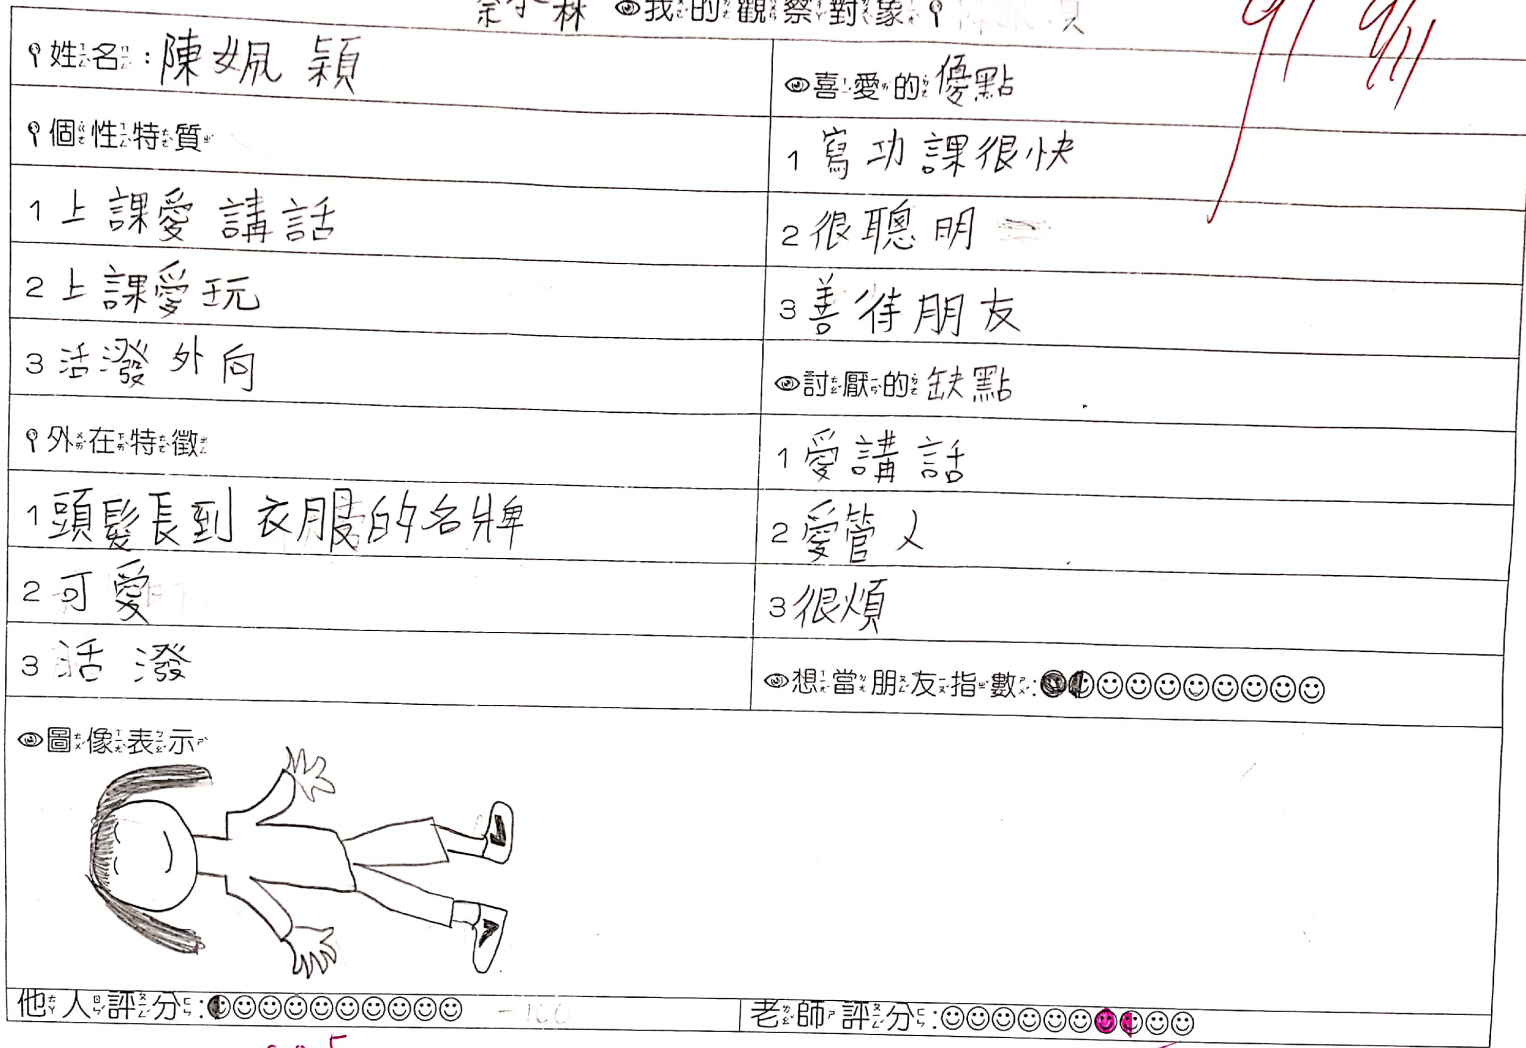 林 我的觀察對象
姓名：陳姵穎
個性特質
1 上課愛講話
2 上課愛玩
3 活潑外向
外在特徵
1 頭髮長到衣服的名牌
2 可愛
3 活潑
喜愛的優點
1 寫功課很快
2 很聰明
3 善待朋友
討厭的缺點
1 愛講話
2 愛管人
3 很煩
想當朋友指數：
圖像表示
他人評分： -100
老師評分：